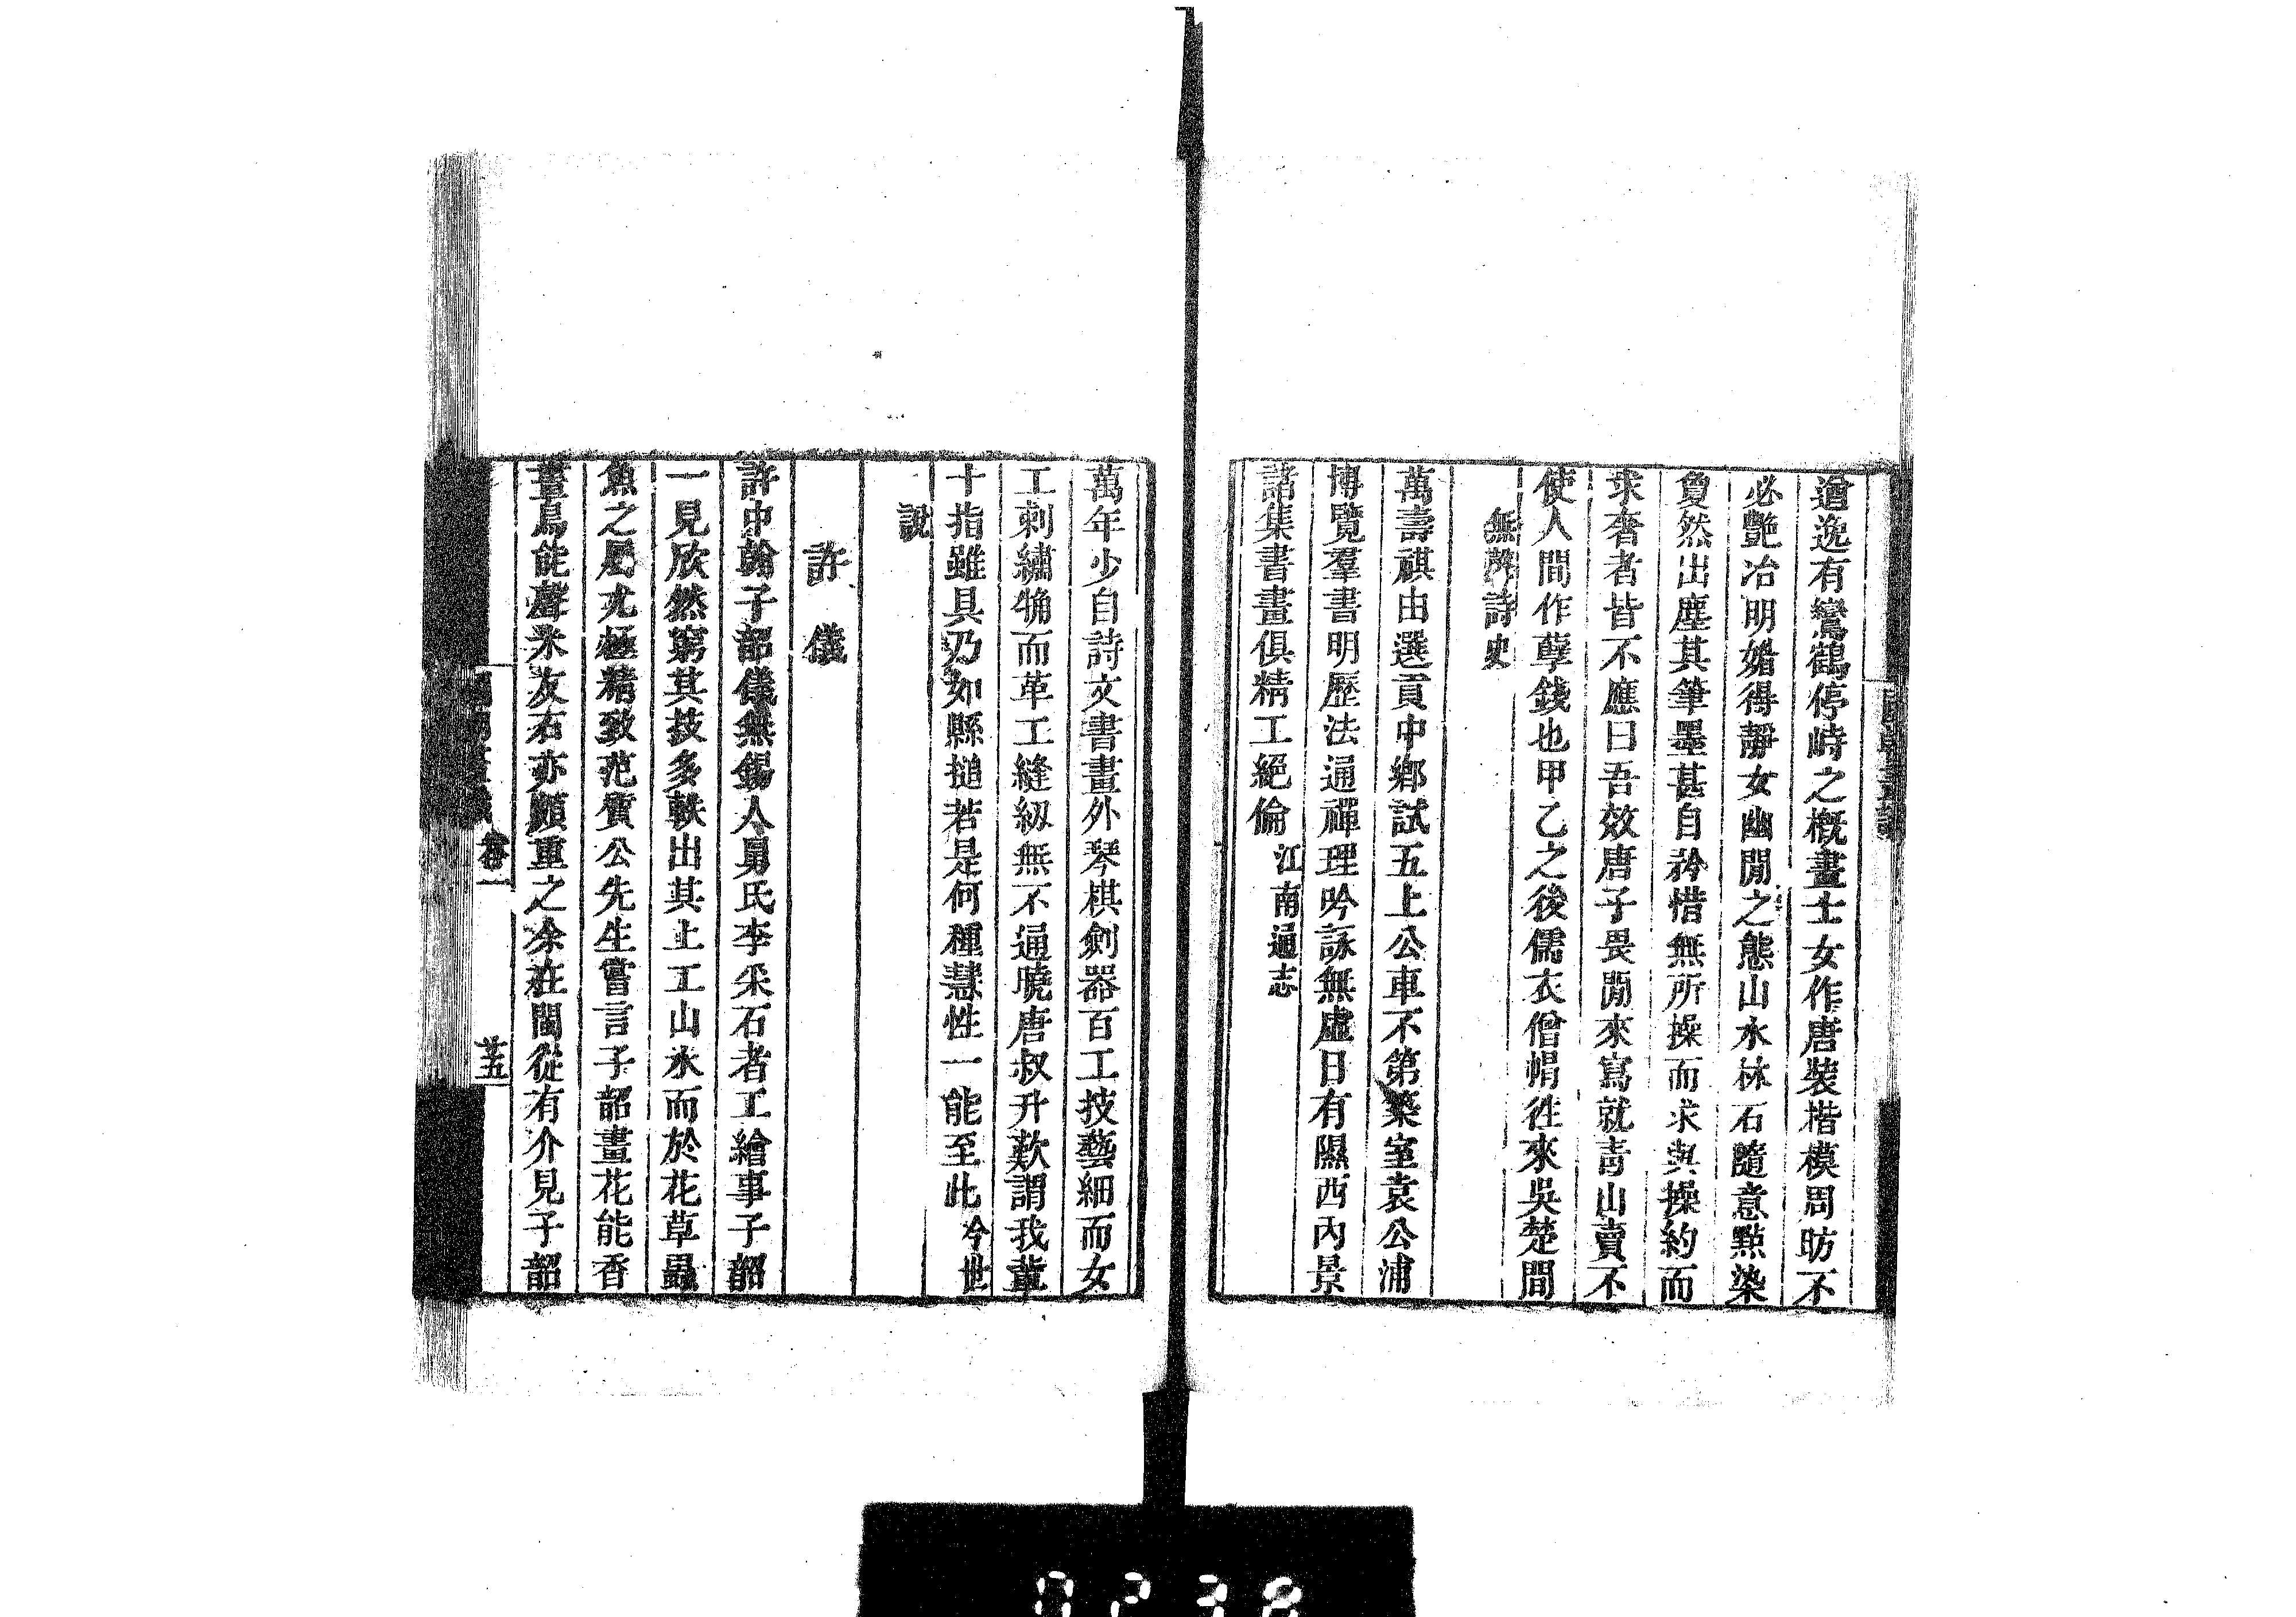 遒逸有鸞鶴停峙之槪畫士女作唐裝楷模周昉不
必艷冶明媚得靜女幽閒之態山水林石隨意點染
敻然出塵其筆墨甚自矜惜無所操而求與操約而
求奢者皆不應曰吾效唐子畏閒來寫就靑山賣不
使人間作孽錢也甲乙之後儒衣僧帽徃來吳楚間
無聲詩史
萬壽祺由選貢中鄉試五上公車不第築室袁公浦
博覽羣書明歷法通禪理吟詠無虛日有隰西內景
諸集書畫俱精工絕倫江南通志
萬年少自詩文書畫外琴棋劍器百工技藝細而女
工刺繡觕而革工縫紉無不通曉唐叔升歎謂我輩
十指雖具乃如縣搥若是何種慧性一能至此今世
說
許儀
許中翰子韶儀無錫人舅氏李采石者工繪事子韶
一見欣然窮其技多軼出其上工山水而於花草蟲
魚之屬尤極精致范質公先生嘗言子韶畫花能香
畫鳥能聲米友石亦頗重之余在閩從有介見子韶
國朝畫識
卷一
廿五
0238